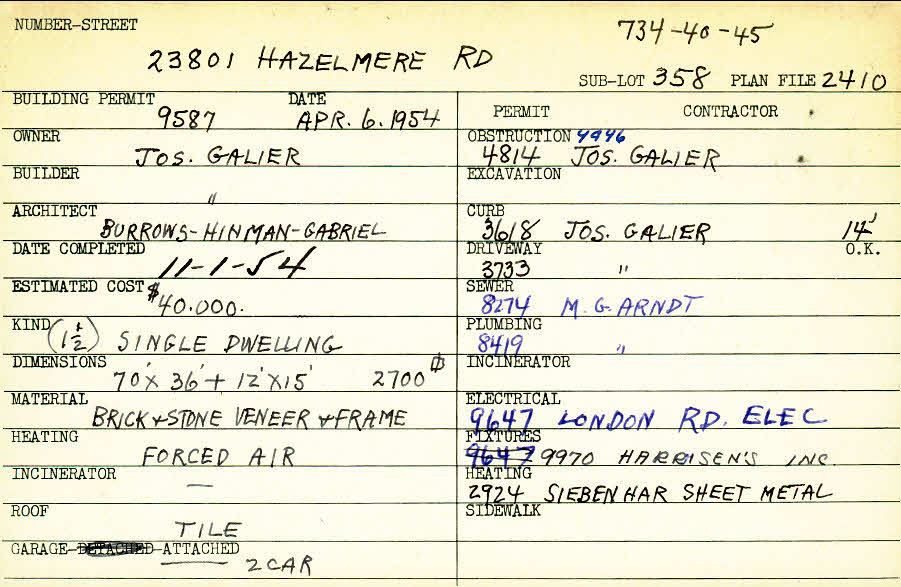 NUMBER-STREET
734-40-45
23801 HAZELMERE RD
SUB-LOT 358 PLAN FILE 2410
BUILDING PERMIT DATE
9587 APR. 6. 1954
OWNER
JOS. GALIER
BUILDER
"
ARCHITECT
BURROWS-HINMAN-GABRIEL
DATE COMPLETED
11-1-54
ESTIMATED COST $
40.000.
KIND (1½)
SINGLE DWELLING
DIMENSIONS
70' X 36' + 12' X 15' 2700
MATERIAL
BRICK & STONE VENEER & FRAME
HEATING
FORCED AIR
INCINERATOR
—
ROOF
TILE
GARAGE-DETACHED-ATTACHED
2 CAR
PERMIT CONTRACTOR
OBSTRUCTION 4946
4814 JOS. GALIER
EXCAVATION
CURB
3618 JOS. GALIER 14'
DRIVEWAY O.K.
3733 "
SEWER
8274 M. G. ARNDT
PLUMBING
8419 "
INCINERATOR
ELECTRICAL
9647 LONDON RD. ELEC
FIXTURES
9647 9970 HARRISEN'S INC.
HEATING
2924 SIEBENHAR SHEET METAL
SIDEWALK